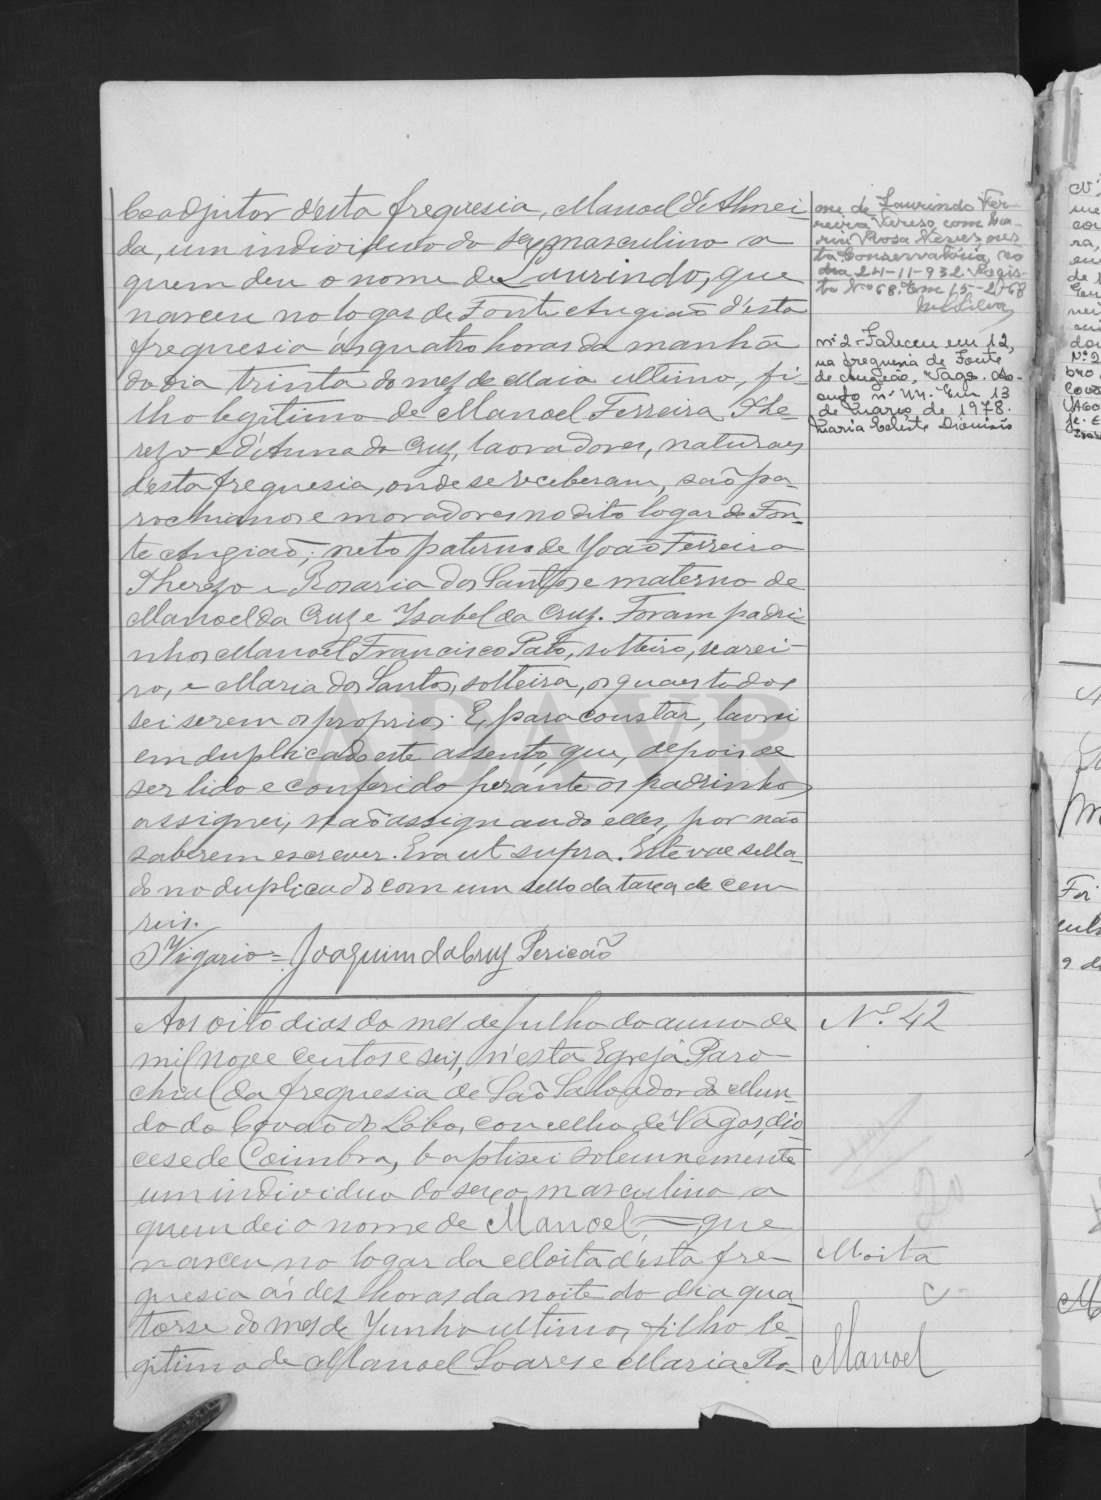 Coadjutor d'esta freguesia, Manoel d'Almei-
da, um individuo do sexo masculino a
quem deu o nome de Laurindo, que
nasceu no logar de Fonte Angião d'esta
freguesia ás quatro horas da manhã
do dia trinta do mez de Maio ultimo, fi-
lho legitimo de Manoel Ferreira The-
rezo e d'Anna da Cruz, lavradores, naturaes
d'esta freguesia, onde se receberam, são pa-
rochianos e moradores no dito logar de Fon-
te Angião; neto paterno de João Ferreira
Therezo e Rosaria dos Santos e materno de
Manoel da Cruz e Isabel da Cruz. Foram padri-
nhos Manoel Francisco Pato, solteiro, searei-
ro, e Maria dos Santos, solteira, os quaes todos
sei serem os proprios. E, para constar, lavrei
em duplicado este assento, que, depois de
ser lido e conferido perante os padrinhos
assignei, não assignando elles, por não
saberem escrever. Era ut supra. Este vae sella-
do no duplicado com um sello da taxa de cem
reis.
O Vigario = Joaquim da Cruz Pericão
me de Laurindo Fer-
reira Tereso com Ma-
ria Rosa Neves nes-
ta Conservatória, no
dia 24-11-932. Regis-
to Nº 68. Em 15-2-68
MSilva
nº 2 - Faleceu em 12,
na freguesia de Fonte
de Angeão, Vagos. As-
ento nº 44. Em 13
de Março de 1978.
Maria Celeste Dionisio
Aos oito dias do mes de Julho do anno de
mil nove centos e seis, n'esta Egreja Paro-
chial da freguesia de São Salvador do Mun-
do do Covão do Lobo, concelho de Vagos, dio-
cese de Coimbra, baptisei solemnemente
um individuo do sexo masculino a
quem dei o nome de Manoel, = que
nasceu no logar da Moita d'esta fre-
guesia ás dez horas da noite do dia qua-
torse do mes de Junho ultimo, filho le-
gitimo de Manoel Soares e Maria Ro-
Nº 42
Moita
Manoel
ADAVR